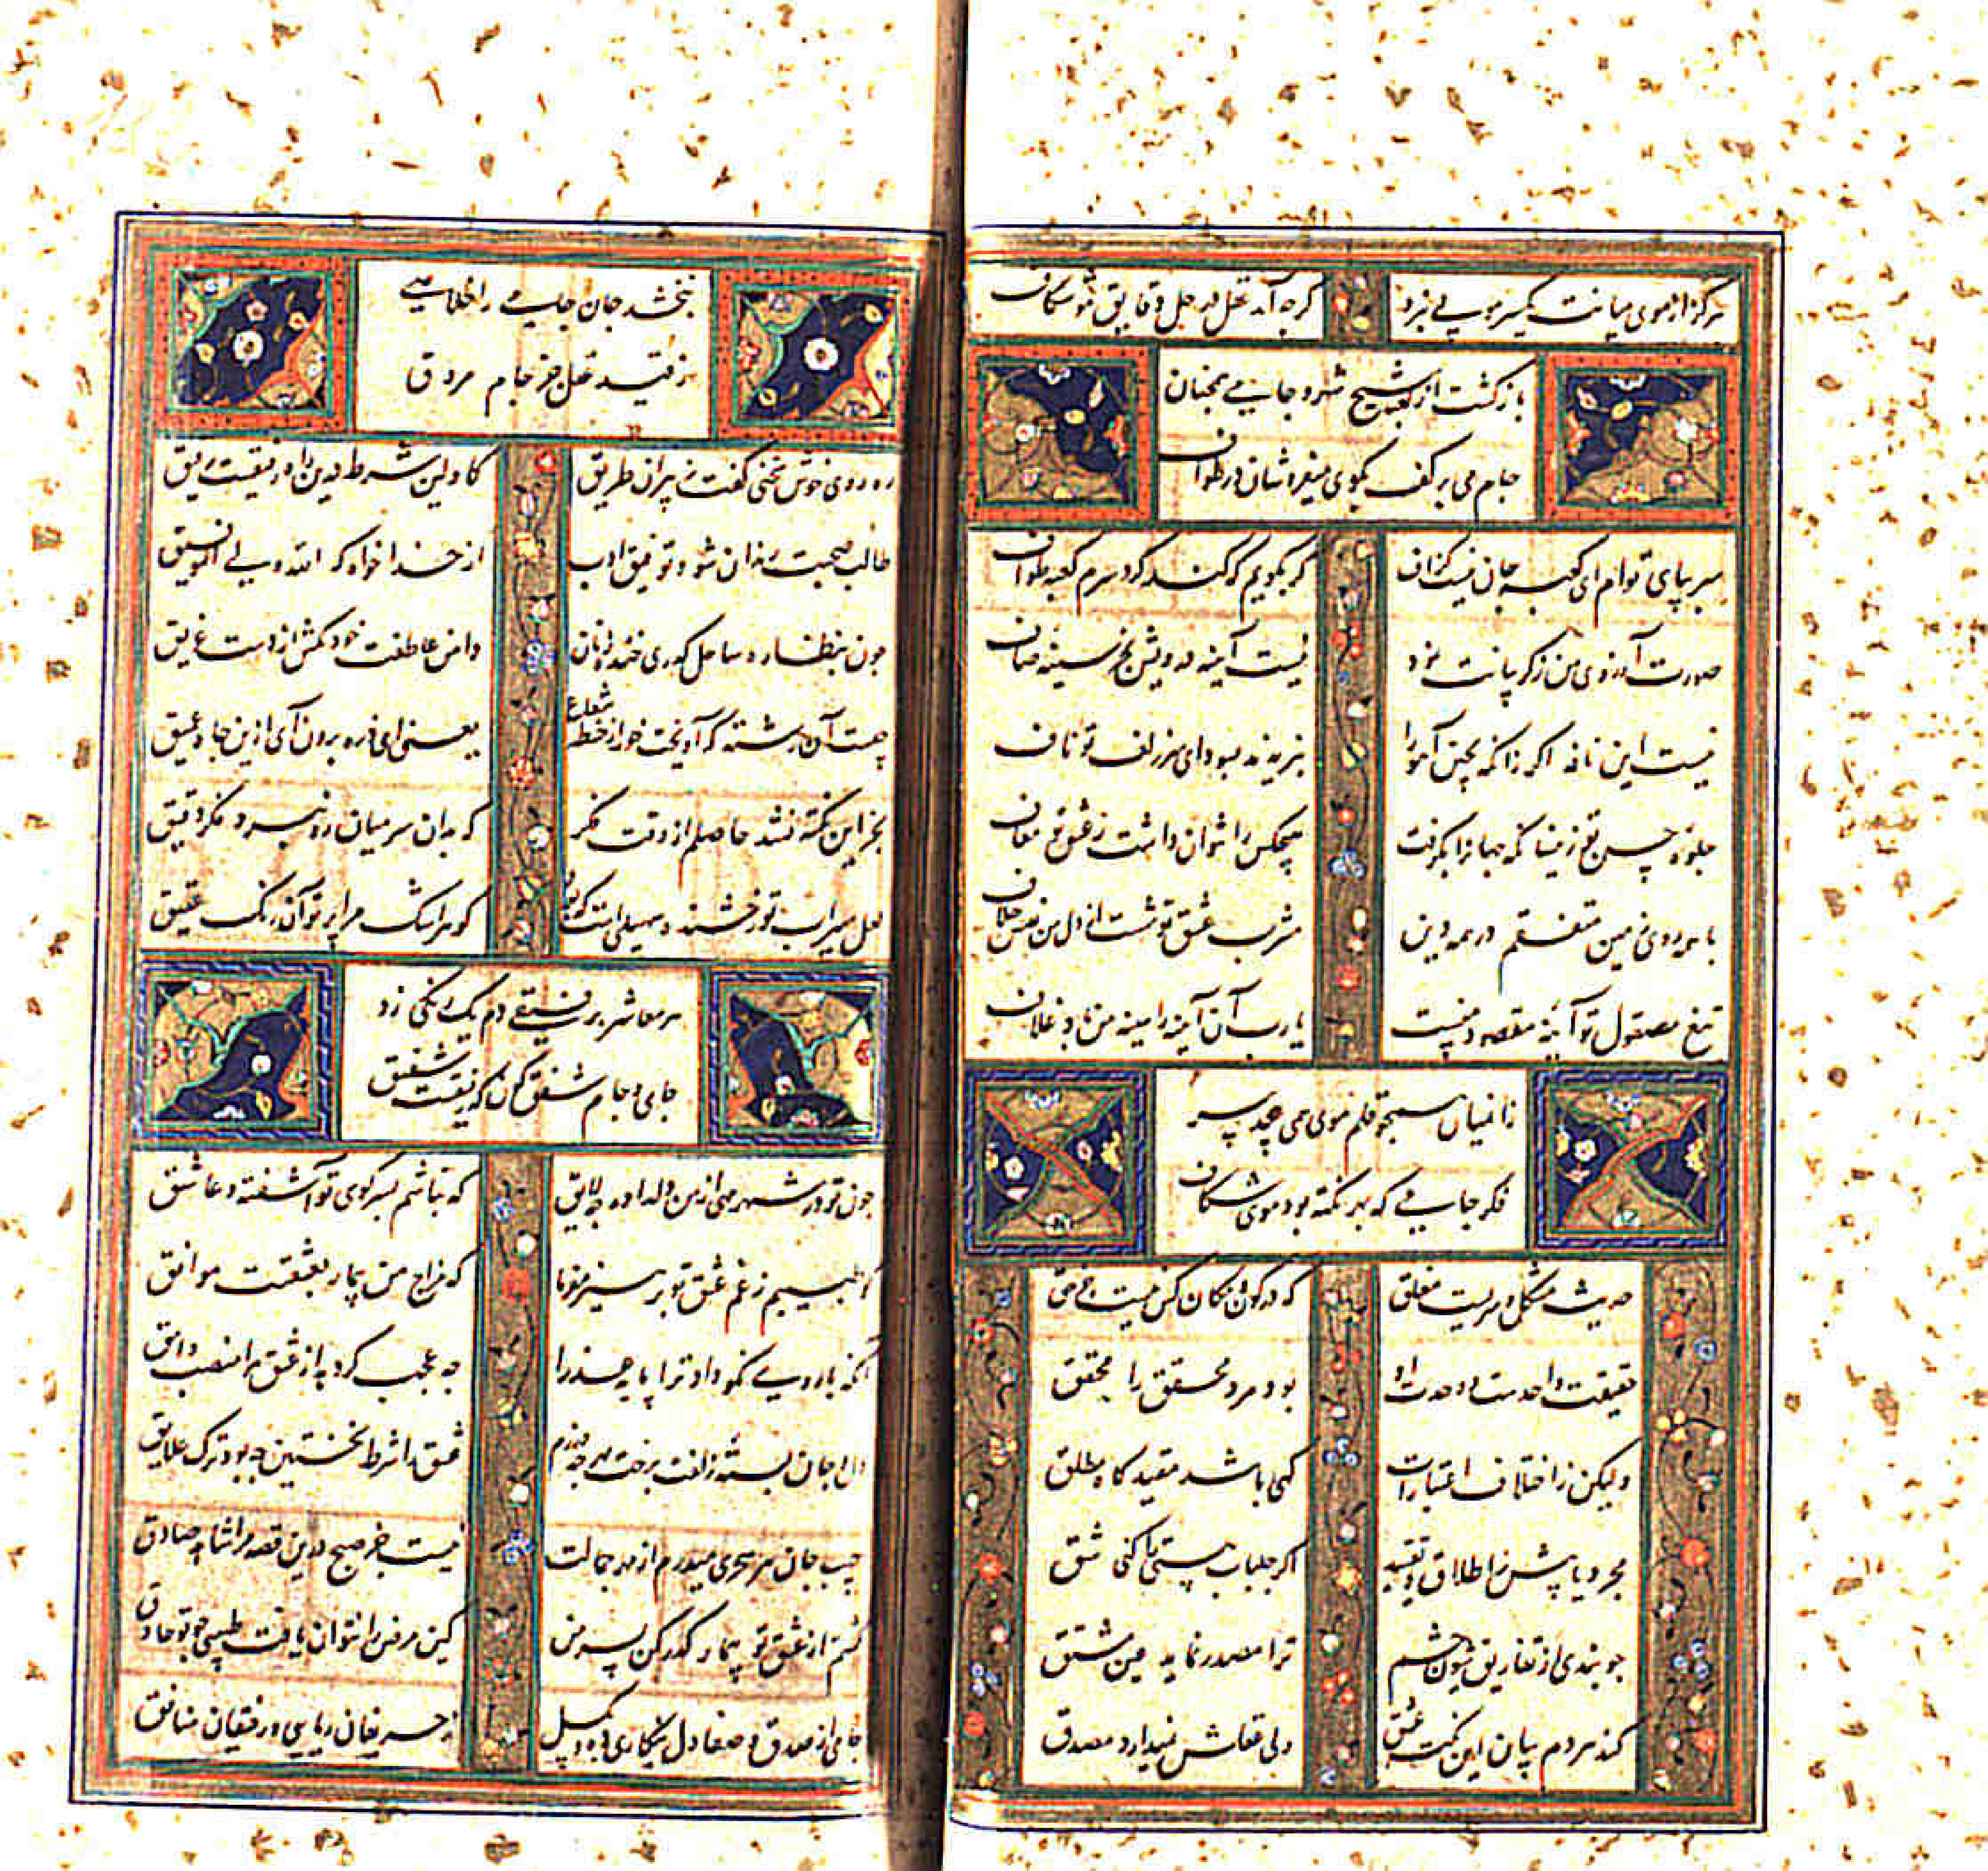 هرگز از موی میانت یکسر مویی نبرد
گرچه آمد عقل در حل دقایق موشکاف
بازگشت از کعبه شیخ شهر و جامی همچنان
جام می بر کف بکوی میفروشان در طواف
سر بپای توام ای کعبه جان نیست گزاف
گر بگویم که کند گرد سرم کعبه طواف
صورت آرزوی من ز گریبانت نمود
نیست آیینه درویش بجز سینه صاف
نیست این نافه اگر زانکه بچین آهو را
نبریدند بسودای سر زلف تو ناف
جلوه حسن تو زینسان که جهانرا بگرفت
هیچکس را نتوان داشت ز عشق تو معاف
با همه روی زمین متفقم در همه دین
مشرب عشق تو شست از دل من نقش خلاف
تیغ مصقول تو آیینه مقصود منیست
یارب آن آینه را سینه من باد غلاف
زانمیان سر سجو قلم موی می پیچد سر
فکر جامی که بهر نکته بود موی شکاف
حدیث مشکل و سریست مغلق
که در کون و مکان کس نیست جز حق
حقیقت واحدست و وحدت او
بود مرد محقق را محقق
ولیکن ز اختلاف اعتبارات
گهی باشد مقید گاه مطلق
مجرد یابیش ز اطلاق و تقیید
اگر جلباب هستی را کنی شق
چو بندی از تفاریق شئون چشم
ترا مصدر نماید عین مشتق
کند مردم بیان این نکته عشق
ولی عقلش نمیدارد مصدق
ببخشد جان جامی را خلاصی
ز قید عقل جز جام مروق
ره روی خوش سخنی گفت ز پیران طریق
کاولین شرط درین راه رفیقست رفیق
طالب صحبت رندان شو و توفیق ادب
از خدا خواه که الله ولی التوفیق
چون بنظاره ساحل گذری خنده زنان
دامن عاطفت خود مکش از دست غریق
چیست آن رشته که آویخت خور از خط شعاع
یعنی ای ذره برون آی ازین چاه عمیق
بجز این نکته نشد حاصلم از دقت فکر
که بدان سر میان ره نبرد فکر دقیق
لعل سیراب تو رخشنده سهیلی است که
گوهر اشک مرا پرتو آن رنگ عقیق
هر معاشر بر فسقی دم یک رنگی زد
جامی و جام شفق گون که رفیقست شفیق
چون تو در شهر مهی از من دلداده چه لایق
که نباشم بسر کوی تو آشفته و عاشق
ای طبیبم ز غم عشق تو پرهیز مفرما
که مزاج من بیمار بعشقست موافق
آنکه با روی نکو داد ترا پایه عذرا
چه عجب گر دهد از عشق مرا منصب وامق
دل و جان بسته زلفت برخت هر چه ندیدم
عشق را شرط نخستین چه بود ترک علایق
جیب جان هر سحری میدرم از مهر جمالت
نیست جز صبح درین قصه مرا شاهد صادق
گشتم از عشق تو بیمار گذر کن بسر من
کین مرض را نتوان یافت طبیبی چو تو حاذق
جامی از صدق و صفا دل بیکاری ده و بگسل
از حریفان ریایی و رفیقان منافق